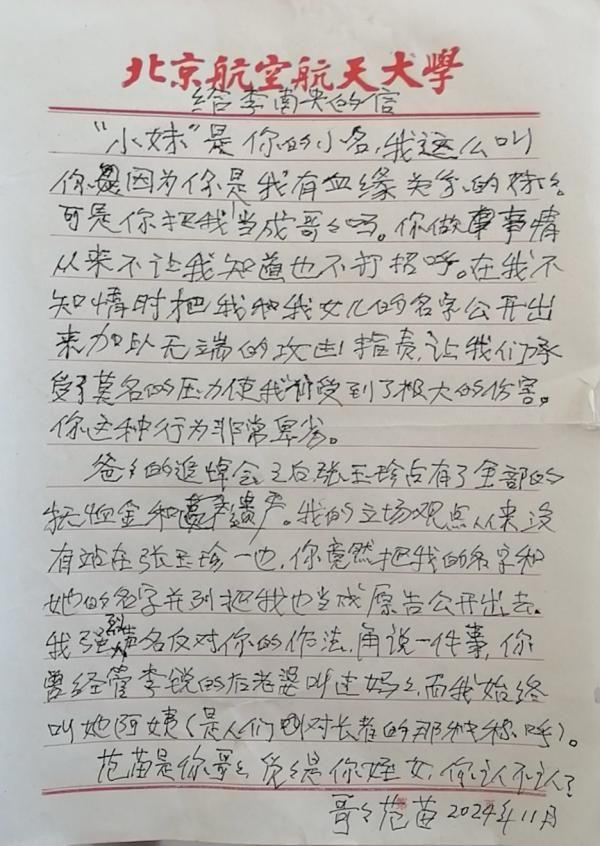 北京航空航天大學
给李南央的信
“小妹”是你的小名，我这么叫
你因为你是我有血缘关系的妹々。
可是你把我当成哥々吗。你做事情
从来不让我知道也不打招呼。在我不
知情时把我和我女儿的名字公开出
来加以无端的攻击指责，让我们承
受了莫名的压力使我们受到了极大的伤害。
你这种行为非常卑劣。
爸々的追悼会之后张玉珍占有了全部的
抚恤金和遗产。我的立场观点从来没
有站在张玉珍一边，你竟然把我的名字和
她的名字并列把我也当成原告公开出去。
我强烈反对你的作法，再说一件事，你
曾经管李锐的后老婆叫过妈々，而我始终
叫她阿姨（是人们对长者的那种称呼）。
范苗是你哥々 是你姪女，你认不认？
哥々范苗 2024年11月